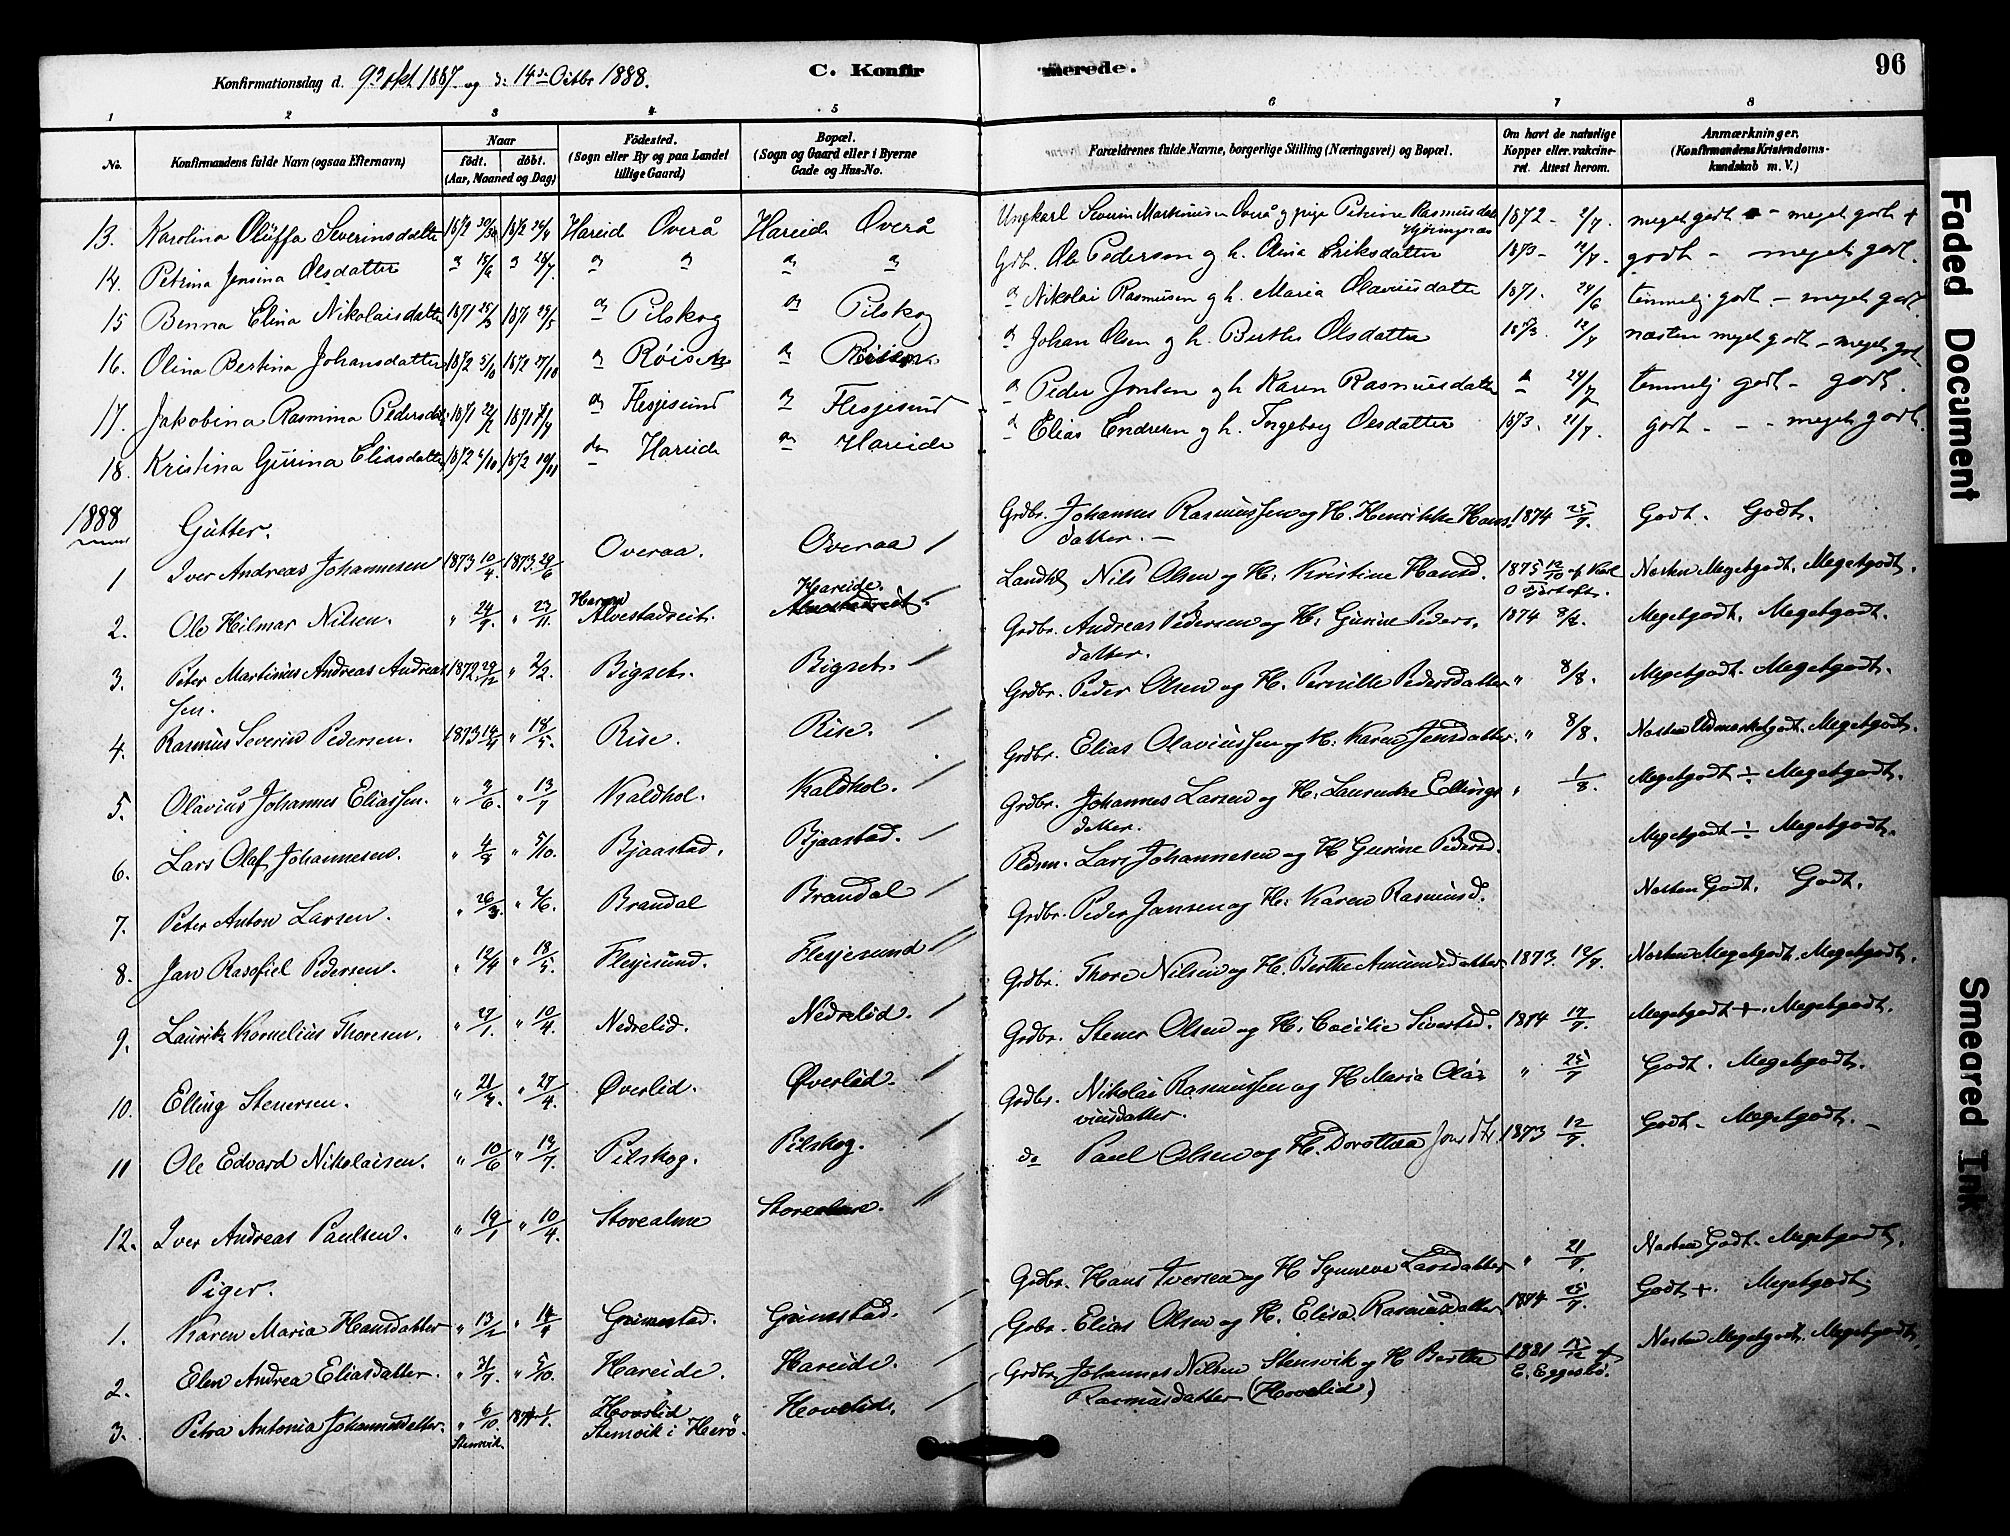 96
Konfirmationsdag d. 9de okt 1887. og d: 14de Octbr 1888.
C. Konfirmerede.
1 2 3 4 5 6 7 8
No.
Konfirmandens fulde Navn (ogsaa Efternavn)
Naar
født. døbt.
(Aar, Maaned og Dag)
Fødested.
(Sogn eller By og paa Landet
tillige Gaard)
Bopæl.
(Sogn og Gaard eller i Byerne
Gade og Hus-No.
Forældrenes fulde Navne, borgerlige Stilling (Næringsvei) og Bopæl.
Om havt de naturlige
Kopper eller vakcine-
ret. Attest herom.
Anmærkninger,
(Konfirmandens Kristendoms-
kundskab m. V.)
13. Karolina Oluffa Severinsdatter 1872 Hareid Overå Hareid Overå Ungkarl Severin Martinusen Overå og pige Petrine Rasmusdat 1872 - 2/7. meget godt - meget godt +
14. Petrina Jensina Olsdatter Gdb. Ole Pedersen og h. Olina Eriksdatter 1873 - 12/7. godt - meget godt.
15 Benna Elina Nikolaisdatter 1871 1871 Pilskog Pilskog Nikolai Rasmusen og h. Maria Olaviusdatte 1871. 24/6 temmelig godt - meget godt
16. Olina Bertina Johansdatter 1872 5/10 1872 27/10 Røisen Johan Olsen og h. Berthe Olsdatter 1873. 12/7 næsten meget godt - meget godt
17. Jakobina Rasmina Pedersdat 1871 1871 Flesjesund Flesjesund Peder Jonsen og h. Karen Rasmusdatte 24/7 temmelig godt - godt.
18. Kristina Gurina Eliasdatter 1872 1872 do Hareide Hareide Elias Endresen og h. Ingeborg Olsdatter 1873. 21/7. godt - - meget godt.
1888 Gutter.
1 Iver Andreas Johannesen 1873 10/4. 1873. 29/6 Overaa. Overaa Grdbr. Johannes Rasmussen og H. Henrikke Hans
datter. - 1874 25/7. Godt. Godt.
2. Ole Hilmar Nilsen. " 24/9. " 23/11. Alvestadreit. Hareide. Landhl Nils Olsen og H. Kristine Hansd. 1875 12/10 Næsten Megetgodt. Megetgodt.
3. Peter Martinus Andreas Andreas
sen. 1872 29/12 " 2/2. Bigset. Bigset. Grdbr. Andreas Pedersen og H. Gurine Peders.
datter. 1874 8/8. Megetgodt. Megetgodt.
4. Rasmus Severin Pedersen. 1873 14/4 " 18/5. Rise. Rise. Grdbr. Peder Olsen og H. Pernille Pedersdatter " 8/8. Megetgodt. Megetgodt.
5. Olavius Johannes Eliassen. " 3/6. " 13/7 Kaldhol. Kaldhol. Grdbr. Elias Olaviussen og H. Karen Jensdatter. " 8/8. Næsten Udmærketgodt. Megetgodt.
6. Lars Olaf Johannesen. " 4/9 " 5/10. Bjaastad. Bjaastad. Grdbr. Johannes Larsen og H. Laurentze Ellings
datter. " 1/8. Megetgodt ÷ Megetgodt.
7. Peter Anton Larsen. " 26/3. " 2/6. Brandal Brandal Pldsm. Lars Johannesen og H Gurine Pedersd. Megetgodt ÷ Megetgodt.
8. Jan Rasofiel Pedersen. " 12/4 " 18/5. Flesjesund. Flesjesund Grdbr. Peder Jansen og H. Karen Rasmusd. Næsten Godt. Godt.
9. Lauritz Kornelius Thoresen. " 27/1. " 10/4. Nedrelid. Nedrelid. Grdbr. Thore Nilsen og H. Berthe Amundsdatter 1873. 12/7. Næsten Megetgodt. Megetgodt.
10. Elling Stenersen. " " 27/4. Øverlid. Øverlid. Grdbr. Stener Olsen og H. Cæcilie Sivertsd. 1874 17/7. Megetgodt +. Megetgodt.
11 Ole Edvard Nikolaisen. " 10/6 " 13/7. Pilskog. Pilskog. Grdbr. Nikolai Rasmussen og H Maria Ola-
viusdatter. " 25/7 Godt. Megetgodt.
12. Iver Andreas Paulsen. " 19/1 " 10/4. Storealme do Paul Olsen og H. Dorothea Jonsdtr 1873 12/7. Godt. Megetgodt.
Piger.
1. Karen Maria Hansdatter " 13/2 " Grimestad. Grimstad. Grdbr. Hans Iversen og H Synneve Larsdatter " 21/7. Næsten Godt. Megetgodt.
2. Elen Andrea Eliasdatter. " " 5/10. Hareide. Hareide. Gdbr. Elias Olsen og H. Elisa. Rasmusdatter 1874 25/7. Godt +. Megetgodt.
3. Petra Antonia Johannesdatter. " 6/10. Stensvik. Hovelid
Stensvik i Herø. Hovelid. Grdbr. Johannes Nilsen Stensvik og H Berthe
Rasmusdatter (Hovelid) 1881 E. Eggesbø. Næsten Megetgodt. Megetgodt.
Faded Document
Smeared Ink